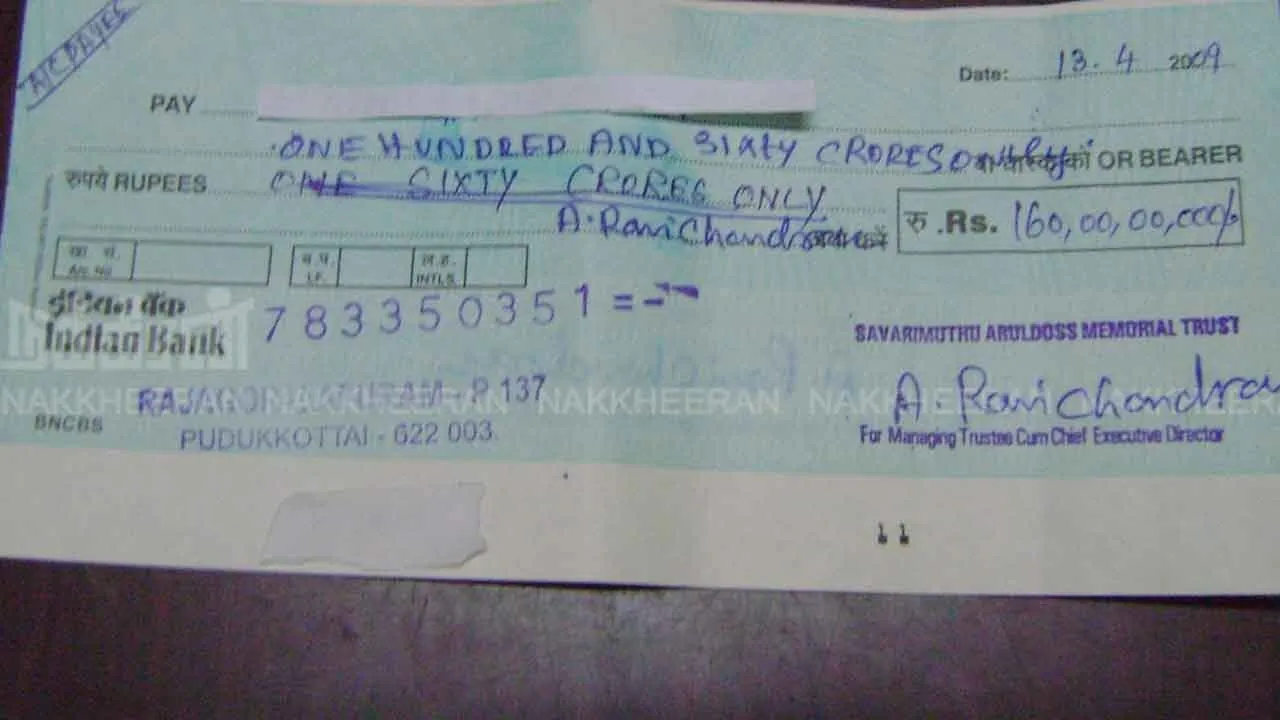 A/C PAYEE
Date: 13.4 2009
PAY
ONE HUNDRED AND SIXTY CRORES ONLY OR BEARER
रुपये RUPEES ONE SIXTY CRORES ONLY
A. Ravichandran
रु .Rs. 160,00,00,000/-
खा. सं.
A/c. No.
ब.पृ.
L.F.
ल.ह.
INTLS.
इंडियन बैंक
Indian Bank
783350351=
SAVARIMUTHU ARULDOSS MEMORIAL TRUST
A Ravichandra
For Managing Trustee Cum Chief Executive Director
NAKKHEERAN NAKKHEERAN NAKKHEERAN NAKKHEERAN
P 137
BNCBS
PUDUKKOTTAI - 622 003.